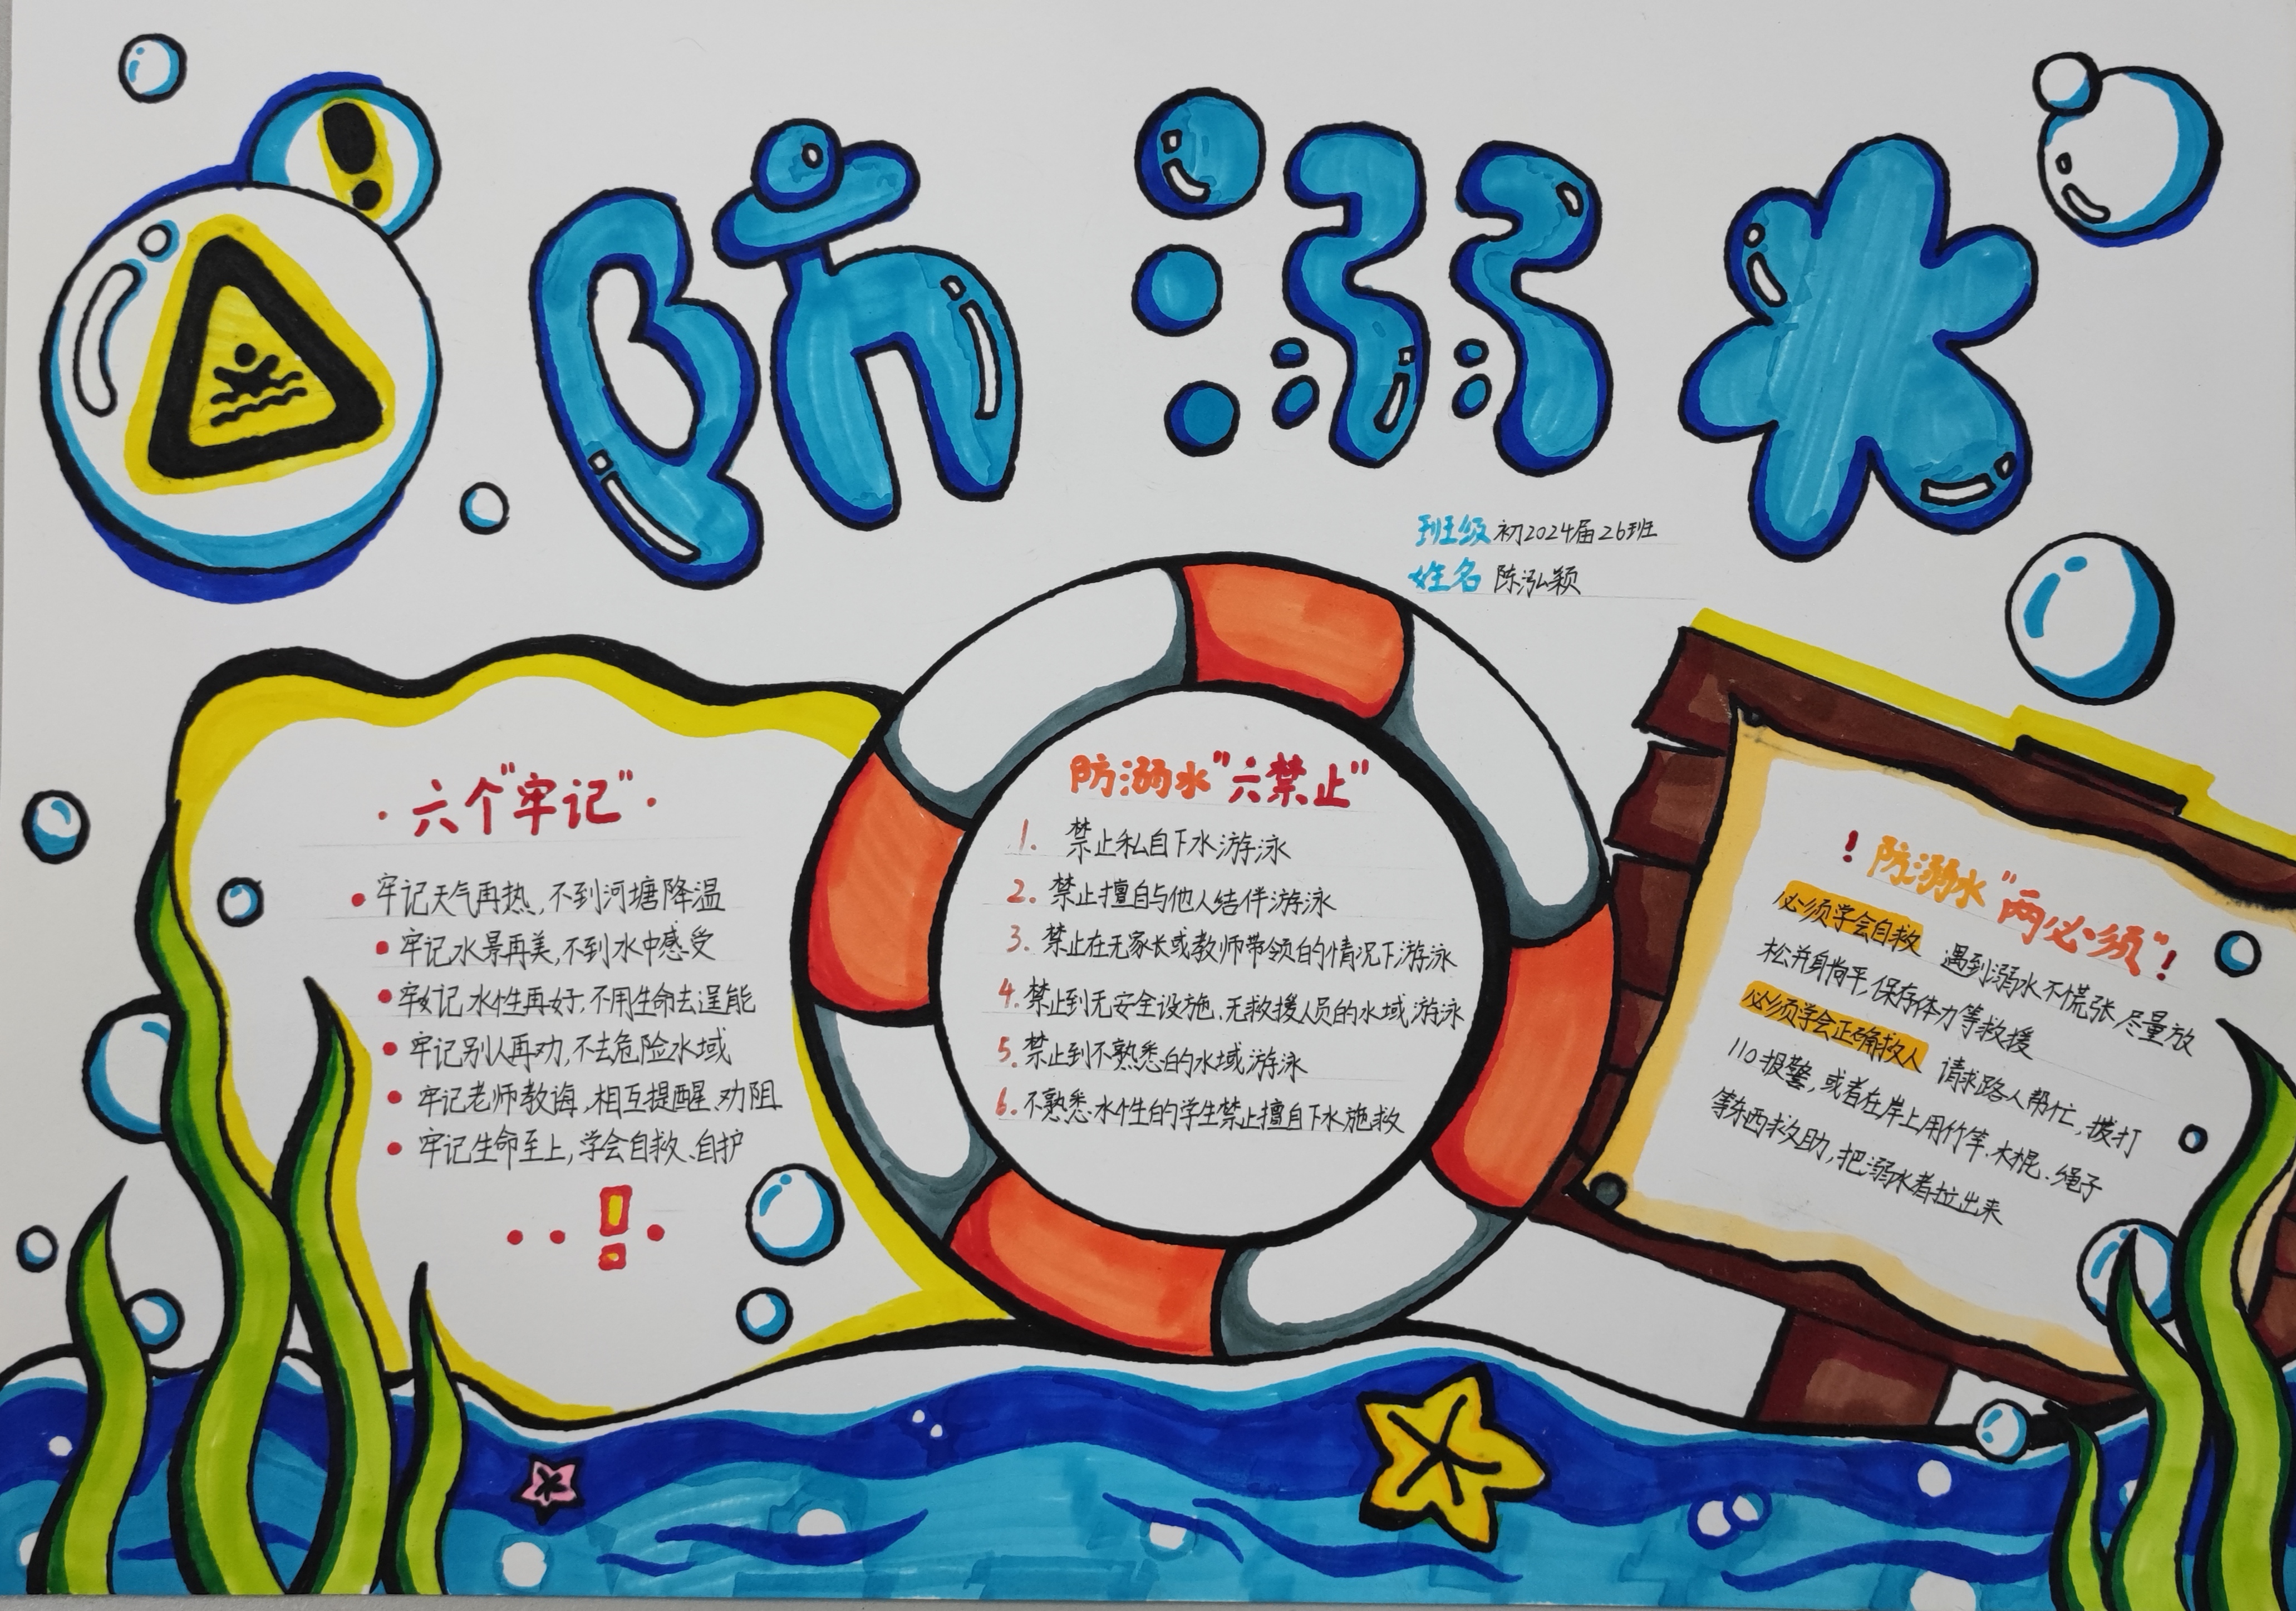 防溺水
班级 初2024届26班
姓名 陈泓颖
·六个"牢记"·
牢记天气再热,不到河塘降温
牢记水景再美,不到水中感受
牢记水性再好,不用生命去逞能
牢记别人再劝,不去危险水域
牢记老师教诲,相互提醒、劝阻
牢记生命至上,学会自救、自护
!
防溺水"六禁止"
1. 禁止私自下水游泳
2. 禁止擅自与他人结伴游泳
3. 禁止在无家长或教师带领的情况下游泳
4. 禁止到无安全设施、无救援人员的水域游泳
5. 禁止到不熟悉的水域游泳
6. 不熟悉水性的学生禁止擅自下水施救
!防溺水"两必须"!
必须学会自救 遇到溺水不慌张,尽量放
松并身尚平,保存体力等救援
必须学会正确救人 请求路人帮忙,拨打
110报警,或者在岸上用竹竿、木棍、绳子
等东西救助,把溺水者拉出来